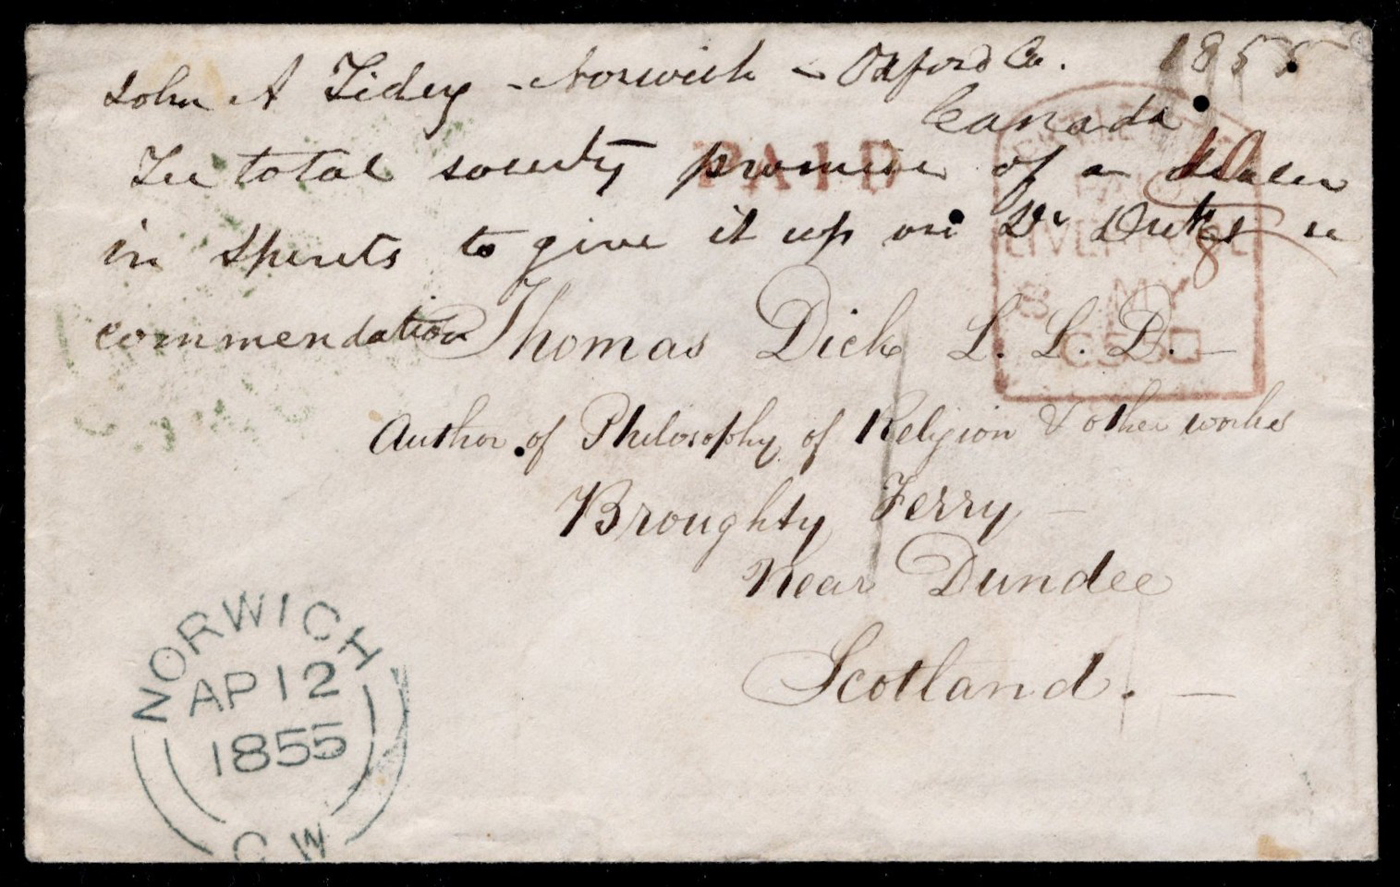 John A Tidey - Norwich - Oxford Co. 1855
Canada
Tee total society promise of a dealer
in Spirits to give it up on Dr Dick's
commendation
PAID
PAID
LIVERPOOL
8 MY
Thomas Dick L. L. D. —
Author of Philosophy of Religion & other works
Broughty Ferry —
Near Dundee
Scotland. —
NORWICH
AP 12
1855
C W